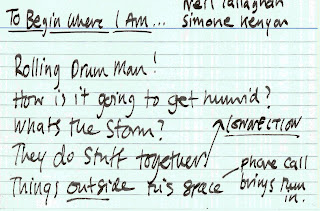 Neil Callaghan
To Begin Where I Am... Simone Kenyon
Rolling Drum Man!
How is it going to get humid?
Whats the Storm?
CONNECTION
They do stuff together
Things outside this space phone call
brings them
in.